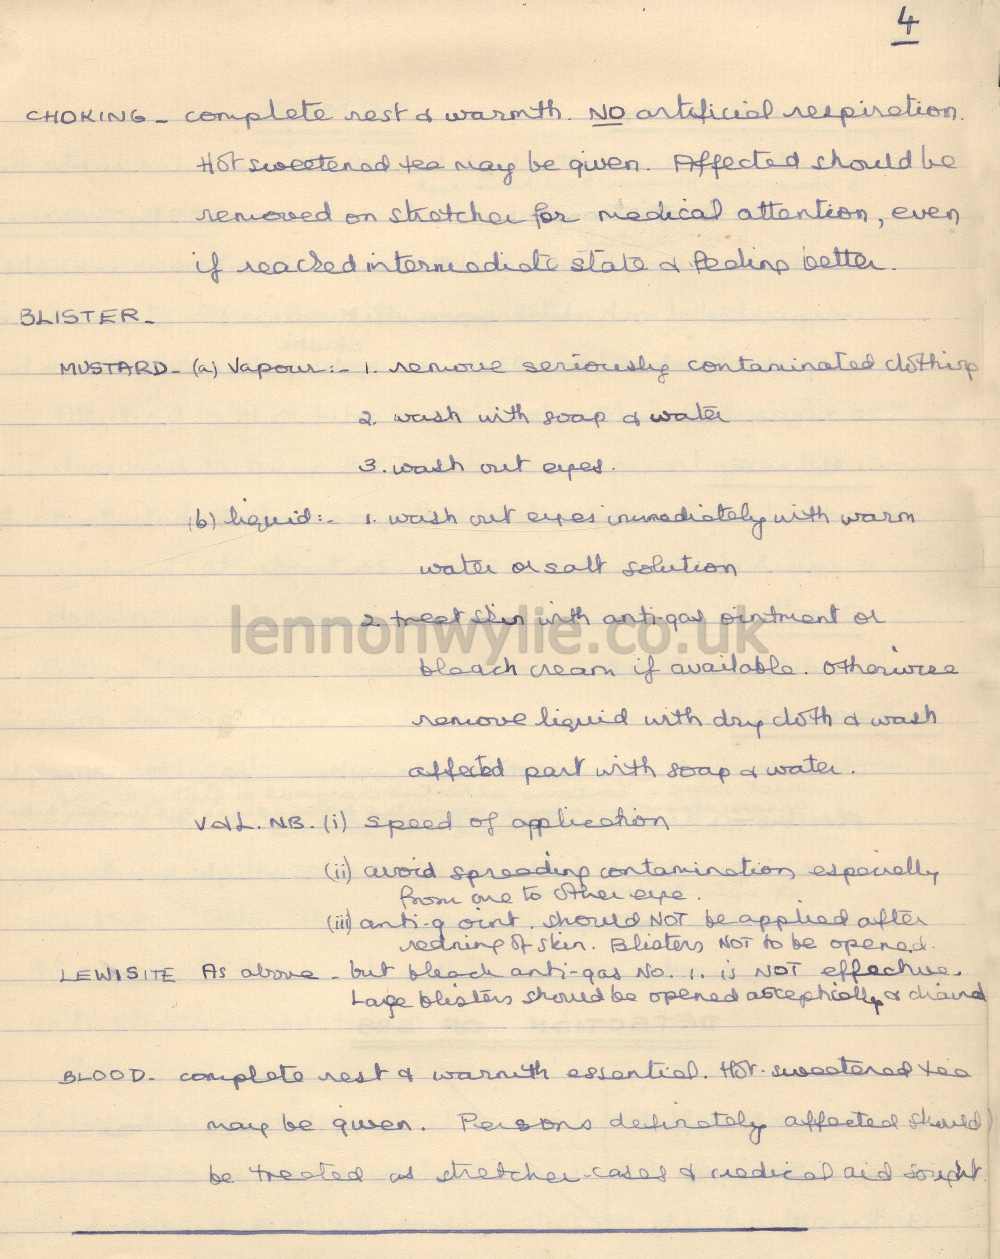 4
CHOKING - complete rest & warmth. NO artificial respiration.
Hot sweetened tea may be given. Affected should be
removed on stretcher for medical attention, even
if reached intermediate state & feeling better.
BLISTER -
MUSTARD - (a) Vapour:- 1. remove seriously contaminated clothing
2. wash with soap & water
3. wash out eyes.
(b) liquid:- 1. wash out eyes immediately with warm
water or salt solution
lennonwylie.co.uk
2. treat skin with anti-gas ointment or
bleach cream if available. Otherwise
remove liquid with dry cloth & wash
affected part with soap & water.
V & L. NB. (i) speed of application
(ii) avoid spreading contamination especially
from one to other eye.
(iii) anti-g oint. should NOT be applied after
redning of skin. Blisters NOT to be opened.
LEWISITE As above - but bleach anti-gas No. 1. is NOT effective.
Large blisters should be opened asceptically &
BLOOD - complete rest & warmth essential. Hot sweetened tea
may be given. Persons definately affected should
be treated as stretcher-cases & medical aid sought.